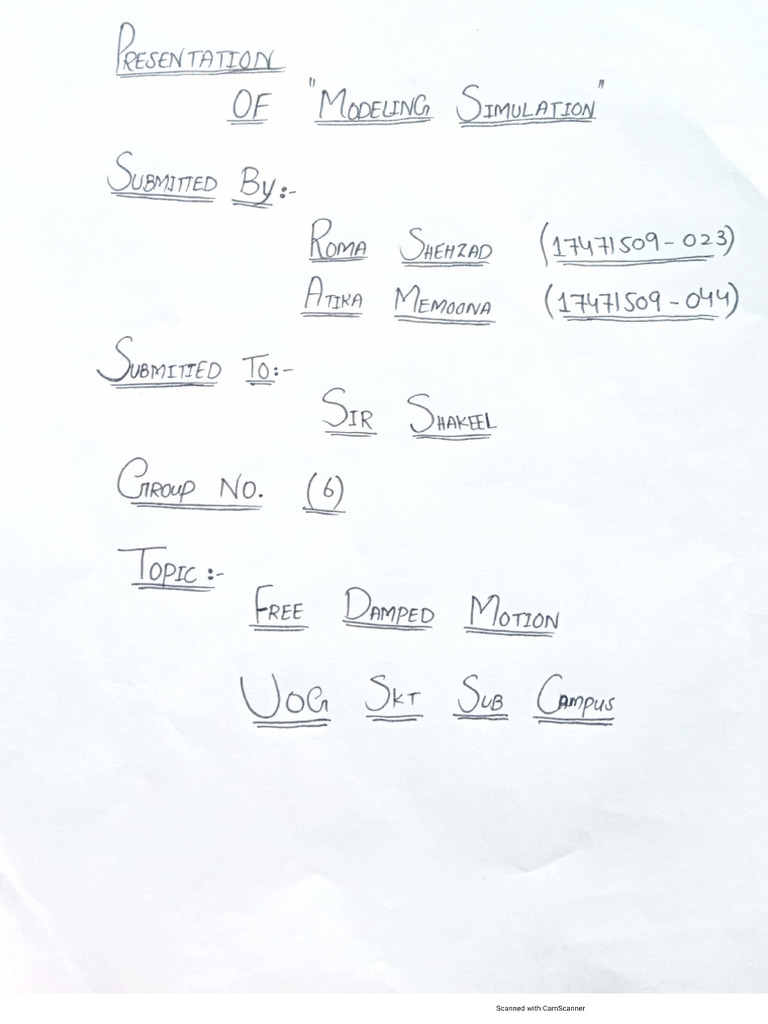 PRESENTATION
OF "MODELING SIMULATION"
SUBMITTED BY:-
ROMA SHEHZAD (17471509-023)
ATIKA MEMOONA (17471509-044)
SUBMITTED TO:-
SIR SHAKEEL
GROUP NO. (6)
TOPIC:-
FREE DAMPED MOTION
UOG SKT SUB CAMPUS
Scanned with CamScanner